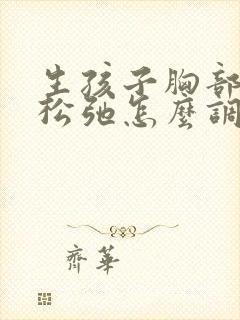 生孩子胸部
松弛怎麼調
齊華